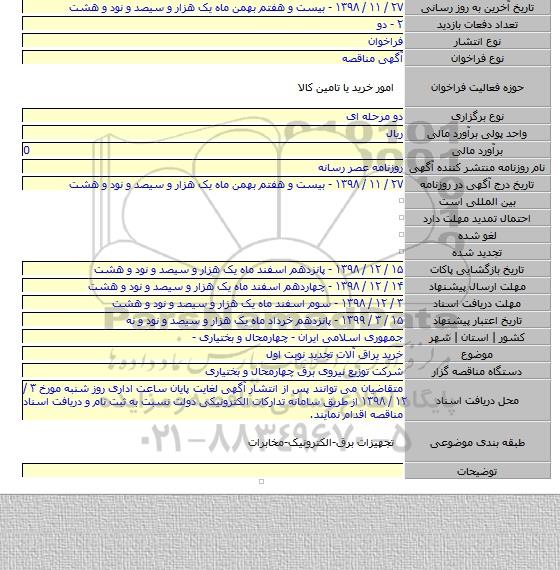 تاریخ آخرین به روز رسانی ۲۷ / ۱۱ / ۱۳۹۸ - بیست و هفتم بهمن ماه یک هزار و سیصد و نود و هشت
تعداد دفعات بازدید ۲ - دو
نوع انتشار فراخوان
نوع فراخوان آگهی مناقصه
حوزه فعالیت فراخوان امور خرید یا تامین کالا
نوع برگزاری دو مرحله ای
واحد پولی برآورد مالی ریال
برآورد مالی 0
نام روزنامه منتشر کننده آگهی روزنامه عصر رسانه
تاریخ درج آگهی در روزنامه ۲۷ / ۱۱ / ۱۳۹۸ - بیست و هفتم بهمن ماه یک هزار و سیصد و نود و هشت
بین المللی است
احتمال تمدید مهلت دارد
لغو شده
تجدید شده
تاریخ بازگشایی پاکات ۱۵ / ۱۲ / ۱۳۹۸ - پانزدهم اسفند ماه یک هزار و سیصد و نود و هشت
مهلت ارسال پیشنهاد ۱۴ / ۱۲ / ۱۳۹۸ - چهاردهم اسفند ماه یک هزار و سیصد و نود و هشت
مهلت دریافت اسناد ۳ / ۱۲ / ۱۳۹۸ - سوم اسفند ماه یک هزار و سیصد و نود و هشت
تاریخ اعتبار پیشنهاد ۱۵ / ۳ / ۱۳۹۹ - پانزدهم خرداد ماه یک هزار و سیصد و نود و نه
کشور | استان | شهر جمهوری اسلامی ایران - چهارمحال و بختیاری -
موضوع خرید یراق آلات تجدید نوبت اول
دستگاه مناقصه گزار شرکت توزیع نیروی برق چهارمحال و بختیاری
محل دریافت اسناد متقاضیان می توانند پس از انتشار آگهی لغایت پایان ساعت اداری روز شنبه مورخ ۳ /
۱۲ / ۱۳۹۸ از طریق سامانه تدارکات الکترونیکی دولت نسبت به ثبت نام و دریافت اسناد
مناقصه اقدام نمایند.
طبقه بندی موضوعی تجهیزات برق-الکترونیک-مخابرات
توضیحات
۰۲۱-۸۸۳۴۹۶۷۰-۵